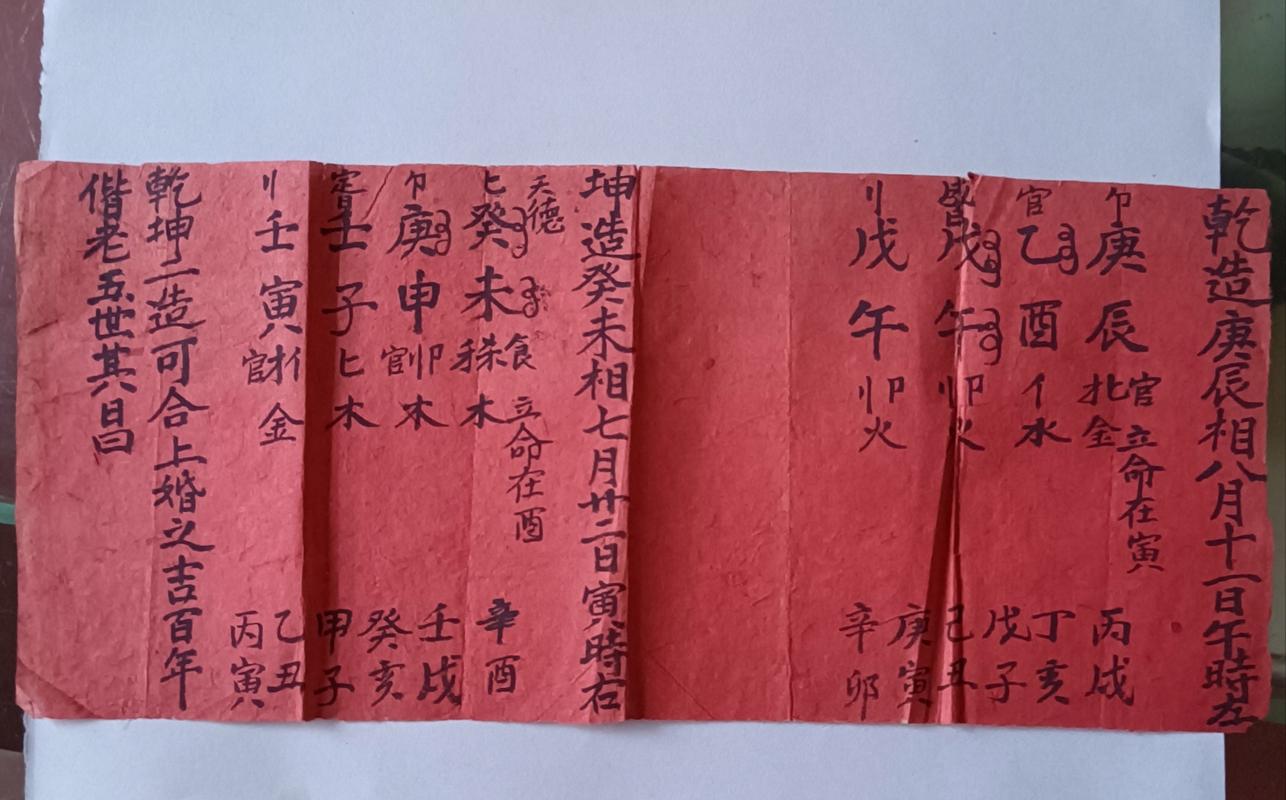 乾造庚辰相八月十一日午時左
卩庚辰
官
金
立命在寅
官乙酉亻水
戊午卩火
刂戊午卩火
丙戌
丁亥
戊子
己丑
庚寅
辛卯
坤造癸未相七月廿二日寅時右
天德
匕癸未
食
木
立命在酉
卩庚申
官卩
木
壬子匕木
刂壬寅
官
金
辛酉
壬戌
癸亥
甲子
乙丑
丙寅
乾坤二造可合上婚之吉百年
偕老五世其昌